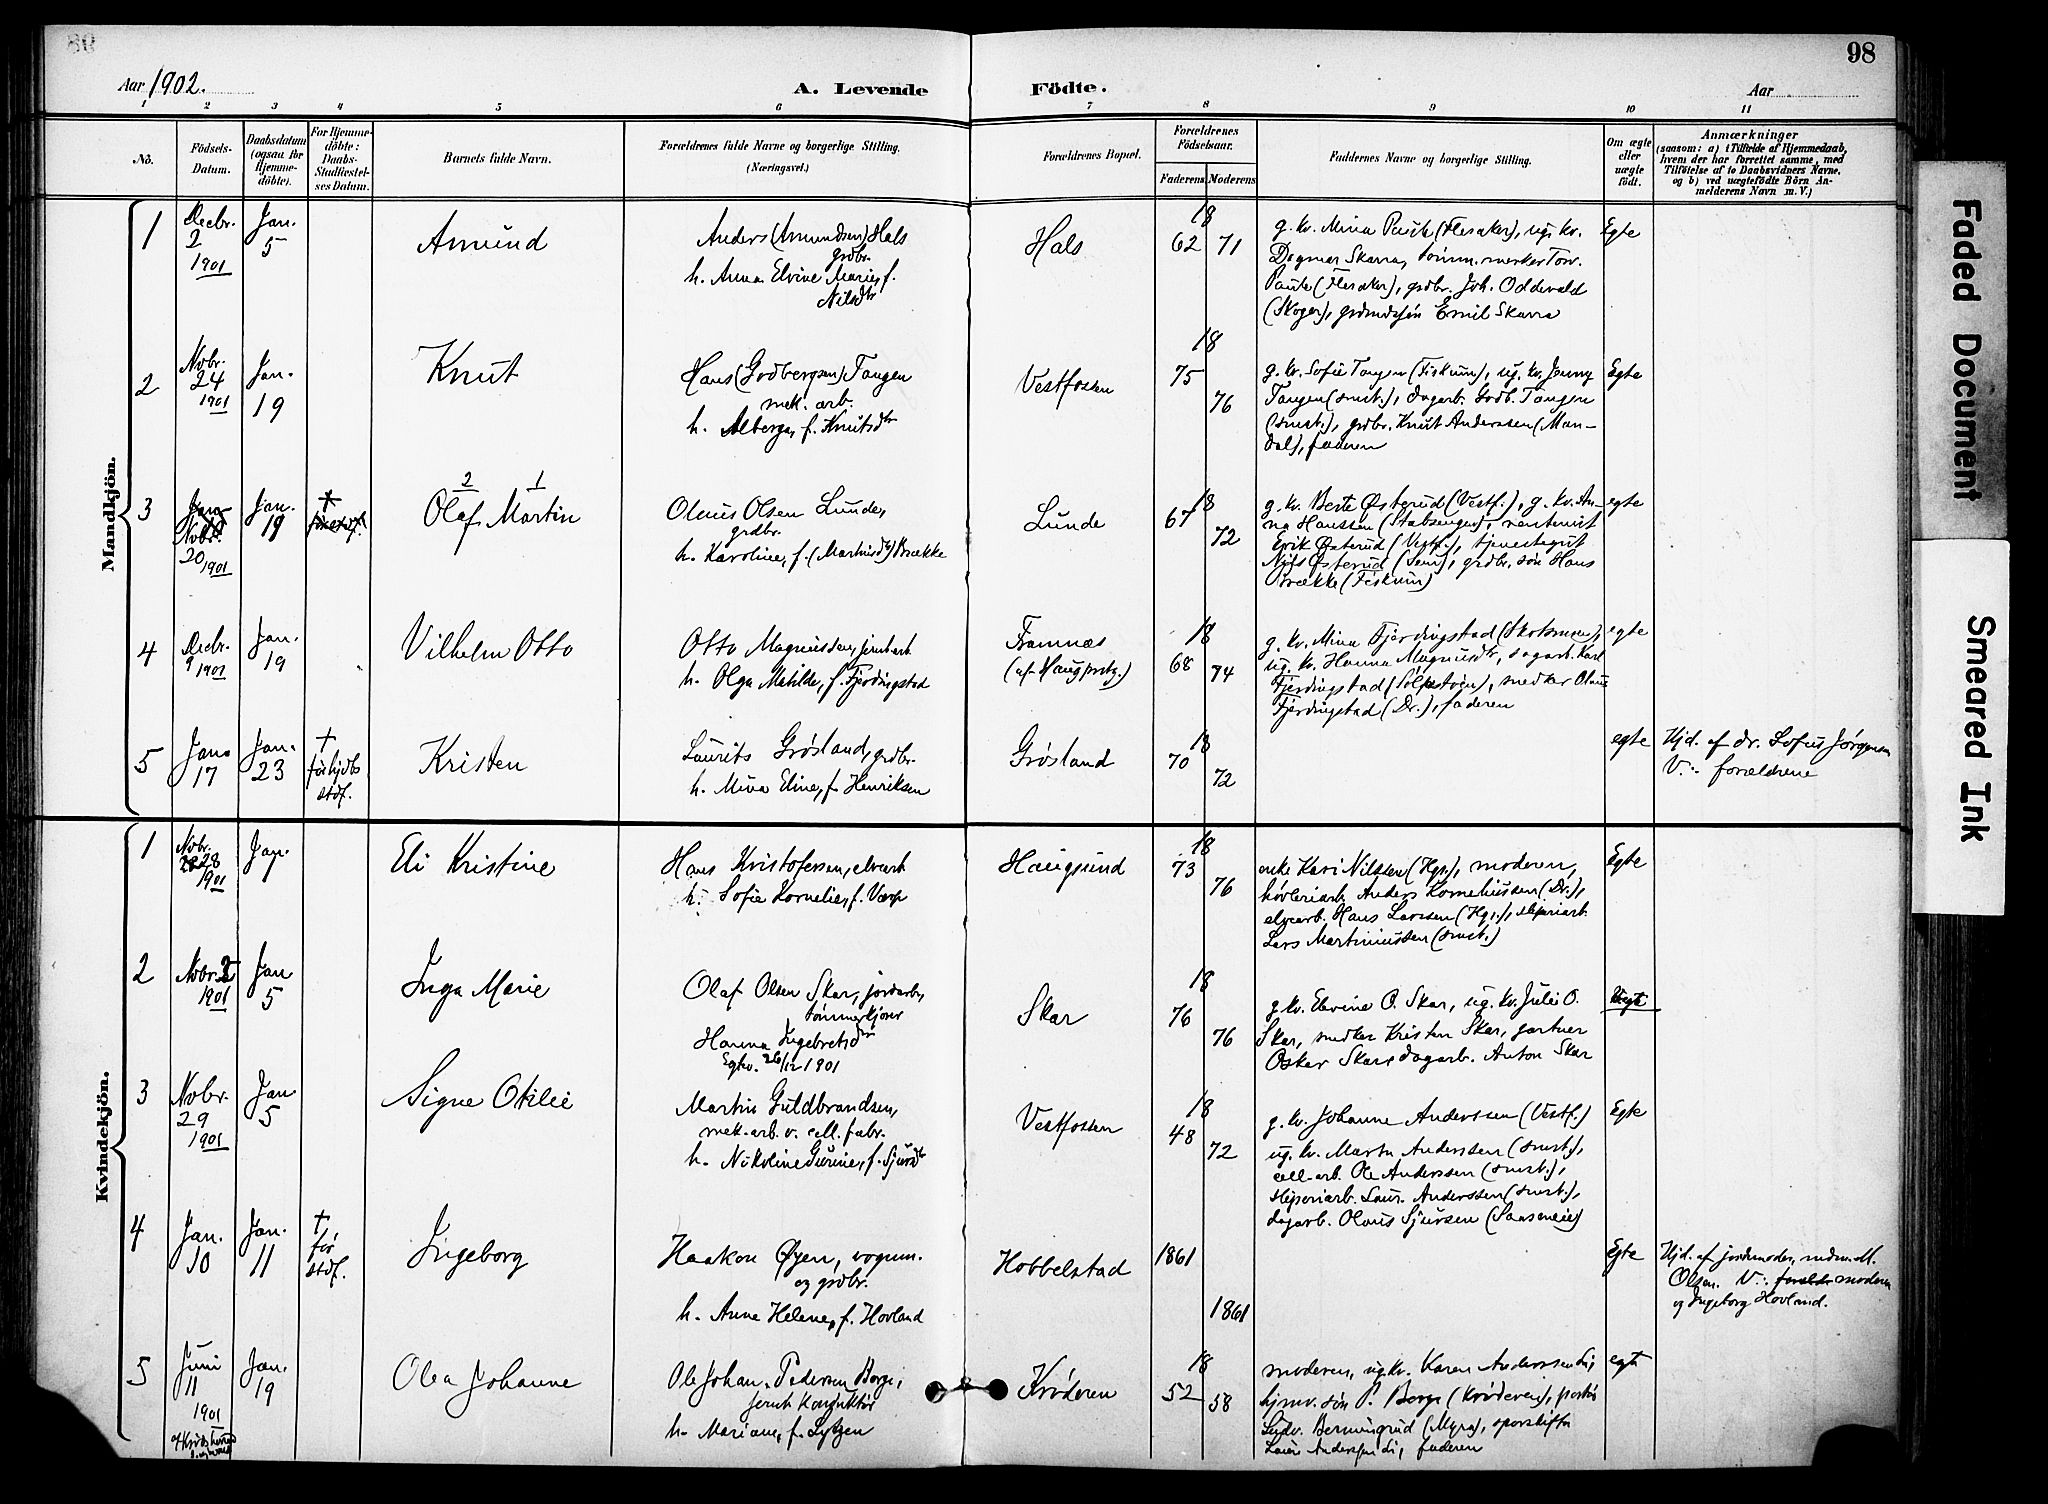 98
Aar 1902.
A. Levende Födte.
Aar
1 2 3 4 5 6 7 8 9 10 11
No.
Födsels-Datum.
Daabsdatum (ogsaa for Hjemme-döbte).
For Hjemme-döbte: Daabs-Stadfæstel-ses Datum.
Barnets fulde Navn.
Forældrenes fulde Navne og borgerlige Stilling.
(Næringsvei.)
Forældrenes Bopæl.
Forældrenes Födselsaar.
Faderens Moderens
Faddernes Navne og borgerlige Stilling.
Om ægte eller uægte födt.
Anmærkninger
(saasom: a) i Tilfælde af Hjemmedaab,
hvem der har forrettet samme, med
Tilföielse af to Daabsvidners Navne,
og b) ved uægtefödte Börn An-
melderens Navn m. V.)
Mandkjön.
1 Decbr. 2 1901
Jan. 5
Amund
Anders (Amundsen) Hals
grdbr.
h. Anna Elvine Marie, f.
Nilsdtr
Hals
18
62 71
g. kv. Mina Paule (Flesaker), ug. kv.
Dagmar Skarra, tømm.merker Torv.
Paule (Flesaker), grdbr. Joh. Oddevald
(Skoger), grdmdsøn Emil Skarra
Egte
2 Nvbr. 24 1901
Jan. 19
Knut
Hans (Godbergsen) Tangen
mek. arb.
h. Alberga, f. Knutsdtr
Vestfossen
18
75 76
g. kv. Sofie Tangen (Fiskum), ug. kv. Jenny
Tangen (smst.), dagarb. Godb. Tangen
(smst.), grdbr. Knut Anderssen (Man-
dal), faderen
Egte
3 Nvbr. 20 1901
Jan. 19
2 1
Olaf Martin
Olaus Olsen Lunde,
grdbr.
h. Karoline, f. (Martinsdtr) Brække
Lunde
18
67 72
g. kv. Berte Østerud (Vestf.), g. kv. An-
na Hanssen (Stabsengen), rentenist
Erik Østerud (Vestf.), tjenestegut
Nils Østerud (Sem), grdbr. søn Hans
Brække (Fiskum)
egte
4 Decbr. 9 1901
Jan. 19
Vilhelm Otto
Otto Magnussen, jernb.arb
h. Olga Matilde, f. Fjerdingstad
Framnæs
(af Haug prstg.)
18
68 74
g. kv. Mina Fjerdingstad (Skotsmoen),
ug. kv. Hanna Magnusdtr, dagarb. Karl
Fjerdingstad, snedker Olaus
Fjerdingstad (Dr.), faderen
egte
5 Jan. 17
Jan. 23
† før hjdbs stdf.
Kristen
Laurits Grøsland, grdbr.
h. Mina Eline, f. Henriksen
Grøsland
18
70 72
egte
Hjd. af dr. Sofus Jørgensen
V.: forældrene
Kvindekjön.
1 Nvbr. 28 1901
Jan. 1
Eli Kristine
Hans Kristofersen, elvearb
h. Sofie Kornelie, f.Værp
Haugsund
18
73 76
enke Kari Nilssen (Hgs.), moderen,
høvleriarb. Anders Korneliussen (Dr.),
elvearb. Hans Larssen (Hgs.), sliperiarb.
Lars Martiniussen (smst.)
Egte
2 Nvbr. 1901
Jan 5
Inga Marie
Olaf Olsen Skar, jordarb.,
tømmerkjører
Hanna Ingebretsdtr
Egtev. 26/12 1901
Skar
18
76 76
g. kv. Elevine O. Skar, ug. kv. Julie O.
Skar, snedker Kristen Skar, gartner
Oskar Skar, dagarb. Anton Skar
3 Nvbr. 29 1901
Jan 5
Signe Otilie
Martin Guldbrandsen,
mek. arb. v. cell. fabr.
h. Nikoline Gurine, f. Sjursdtr
Vestfossen
18
48 72
g. kv. Johanne Anderssen (Vestf.)
ug. kv. Marta Anderssen (smst.),
cell-arb. Ole Anderssen (smst.),
sliperiarb. Laur. Anderssen (smst.),
dagarb. Olaus Sjursen
Egte
4 Jan. 10
Jan. 11
† før stdf.
Ingeborg
Haakon Øyen, vognm.
og grdbr.
h. Anne Helene, f. Hovland
Hobbelstad
1861
1861
Egte
Hjd. af jordmoder, mdm. M.
Olsen. V.: moderen
og Ingeborg Hovland.
5 Juni 11 1901
Jan. 19
Olea Johanne
Ole Johan Pedersen Borge,
jernb. konduktør
h. Mariane, f. Lykzen
Krøderen
18
52 58
moderen, ug kv. Karen Anderssen Li,
hjmv. søn P. Borge (Krøderen),
Ludv. Bermingrud (Myra), sporskifter
Anderssen Li, faderen
egte
Faded Document
Smeared Ink